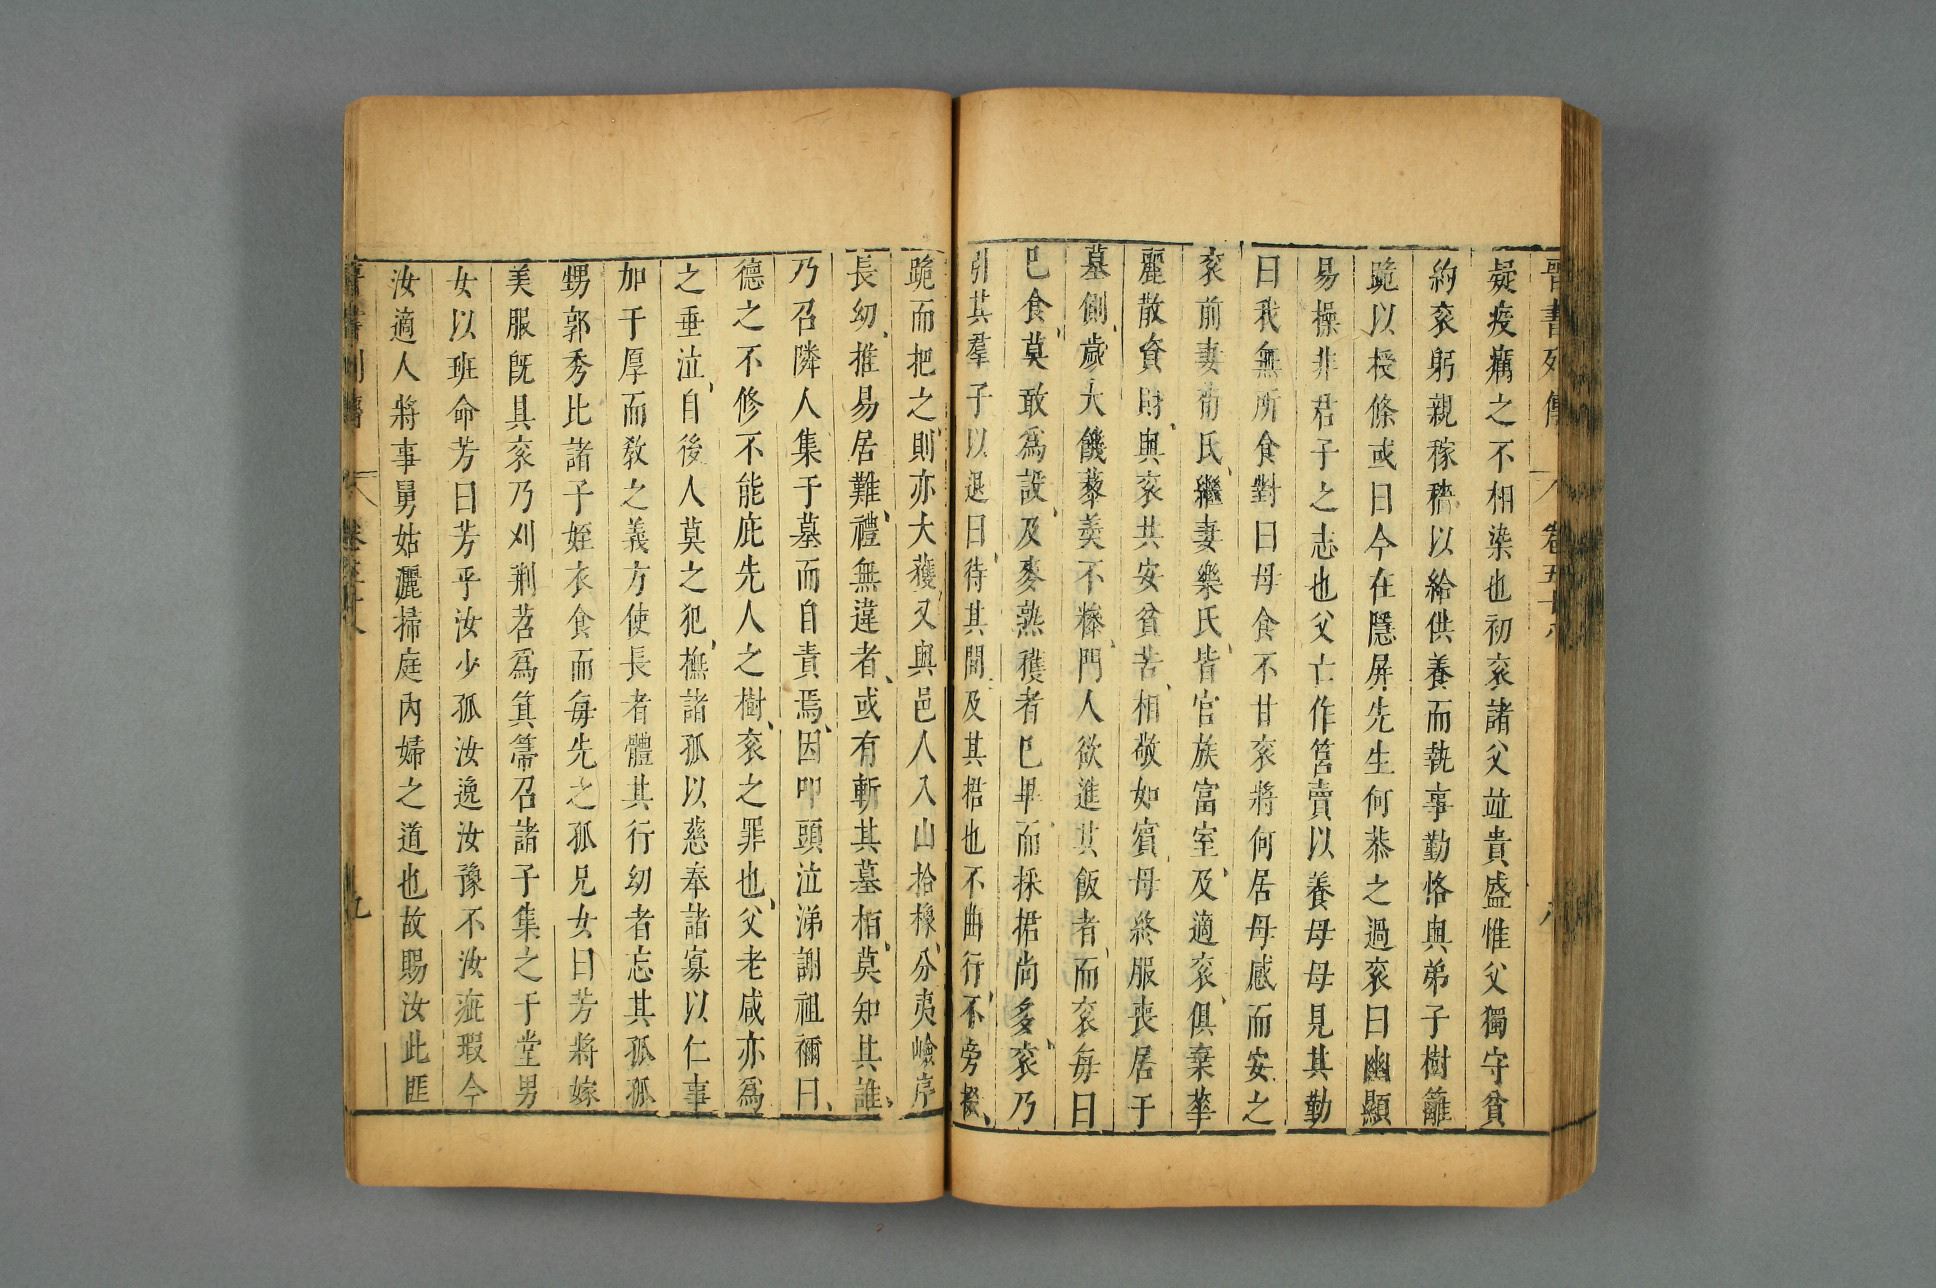 晉書列傳 卷五十八 八
疑疫癘之不相染也初衮諸父竝貴盛惟父獨守貧
約衮躬親稼穡以給供養而執事勤恪與弟子樹籬
跪以授條或曰今在隱屏先生何恭之過衮曰幽顯
易操非君子之志也父亡作筥賣以養母母見其勤
曰我無所食對曰母食不甘衮將何居母感而安之
衮前妻荀氏繼妻樂氏皆官族富室及適衮俱棄華
麗散資財與衮共安貧苦相敬如賓母終服喪居于
墓側歲大饑藜羹不糝門人欲進其飯者而衮每曰
已食莫敢爲設及麥熟穫者已畢而採捃尚多衮乃
引其羣子以退曰待其間及其捃也不曲行不旁掇
跪而把之則亦大獲又與邑人入山拾橡分夷嶮序
長幼推易居難禮無違者或有斬其墓栢莫知其誰
乃召隣人集于墓而自責焉因叩頭泣涕謝祖禰曰
德之不修不能庇先人之樹衮之罪也父老咸亦爲
之垂泣自後人莫之犯撫諸孤以慈奉諸寡以仁事
加于厚而敎之義方使長者體其行幼者忘其孤孤
甥郭秀比諸子姪衣食而每先之孤兄女曰芳將嫁
美服旣具衮乃刈荆苕爲箕箒召諸子集之于堂男
女以班命芳曰芳乎汝少孤汝逸汝豫不汝疵瑕今
汝適人將事舅姑灑掃庭內婦之道也故賜汝此匪
晉書列傳 卷五十八 九